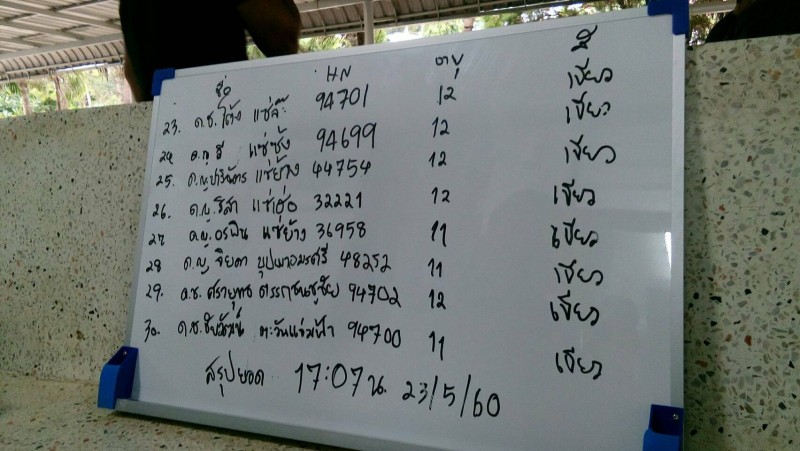 ชื่อ HN อายุ สี
23. ด.ช. โต้ง แซ่ลี 94701 12 เขียว
24 ด.ญ ธี แซ่ซ้ง 94699 12 เขียว
25. ด.ญ ปาริฉัตร แซ่ย้าง 44754 12 เขียว
26. ด.ญ. ริสา แซ่ฮ่อ 32221 12 เขียว
27 ด.ญ. อรพิน แซ่ย้าง 36958 11 เขียว
28 ด.ญ. จิยดา 48252 11 เขียว
29. ด.ช. ศรายุทธ 94702 12 เขียว
30. ด.ช. ชัยวัฒน์ ตะวันแจ่มฟ้า 94700 11 เขียว
สรุปยอด 17:07 น. 23/5/60